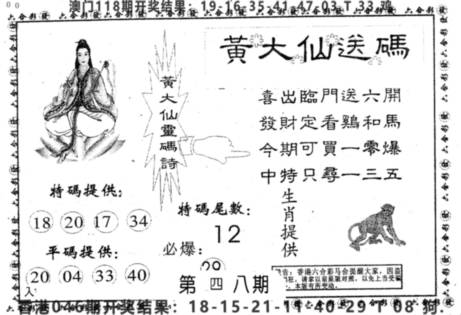 澳门118期开奖结果：19-16-35-41-47-03 T 33 鸡
黃大仙送碼
黃大仙靈碼詩
喜出臨門送六開
發財定看鷄和馬
今期可買一零爆
中特只尋一三五
生肖提供
特碼提供：
18 20 17 34
平碼提供：
20 04 33 40
特碼尾數：
12
必爆：
第四八期
香港046期开奖结果：18-15-21-11-40-29 T 08 狗.